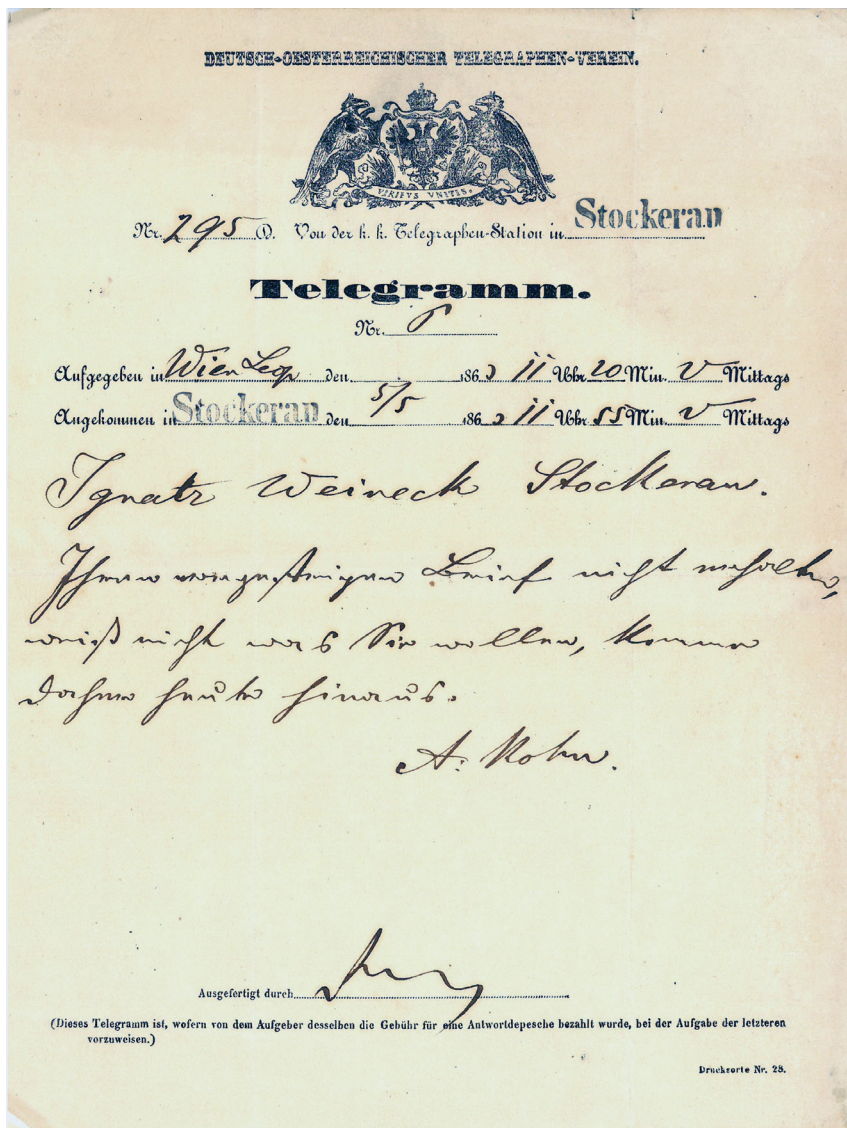 DEUTSCH-OESTERREICHISCHER TELEGRAPHEN-VEREIN.
VIRIBVS VNITIS.
Nr. 295 Von der k. k. Telegraphen-Station in Stockerau
Telegramm.
Nr.
Aufgegeben in Wien Leop den 186 11 Uhr 20 Min. V Mittags
Angekommen in Stockerau den 5/5 186 11 Uhr 55 Min. V Mittags
Ignatz Weineck Stockerau.
Ihren vorgestrigen Brief nicht erhalten,
weiß nicht was Sie wollen, komme
daher heute hinaus.
A. Kohn.
Ausgefertigt durch
(Dieses Telegramm ist, wofern von dem Aufgeber desselben die Gebühr für eine Antwortdepesche bezahlt wurde, bei der Aufgabe der letzteren
vorzuweisen.)
Drucksorte Nr. 28.